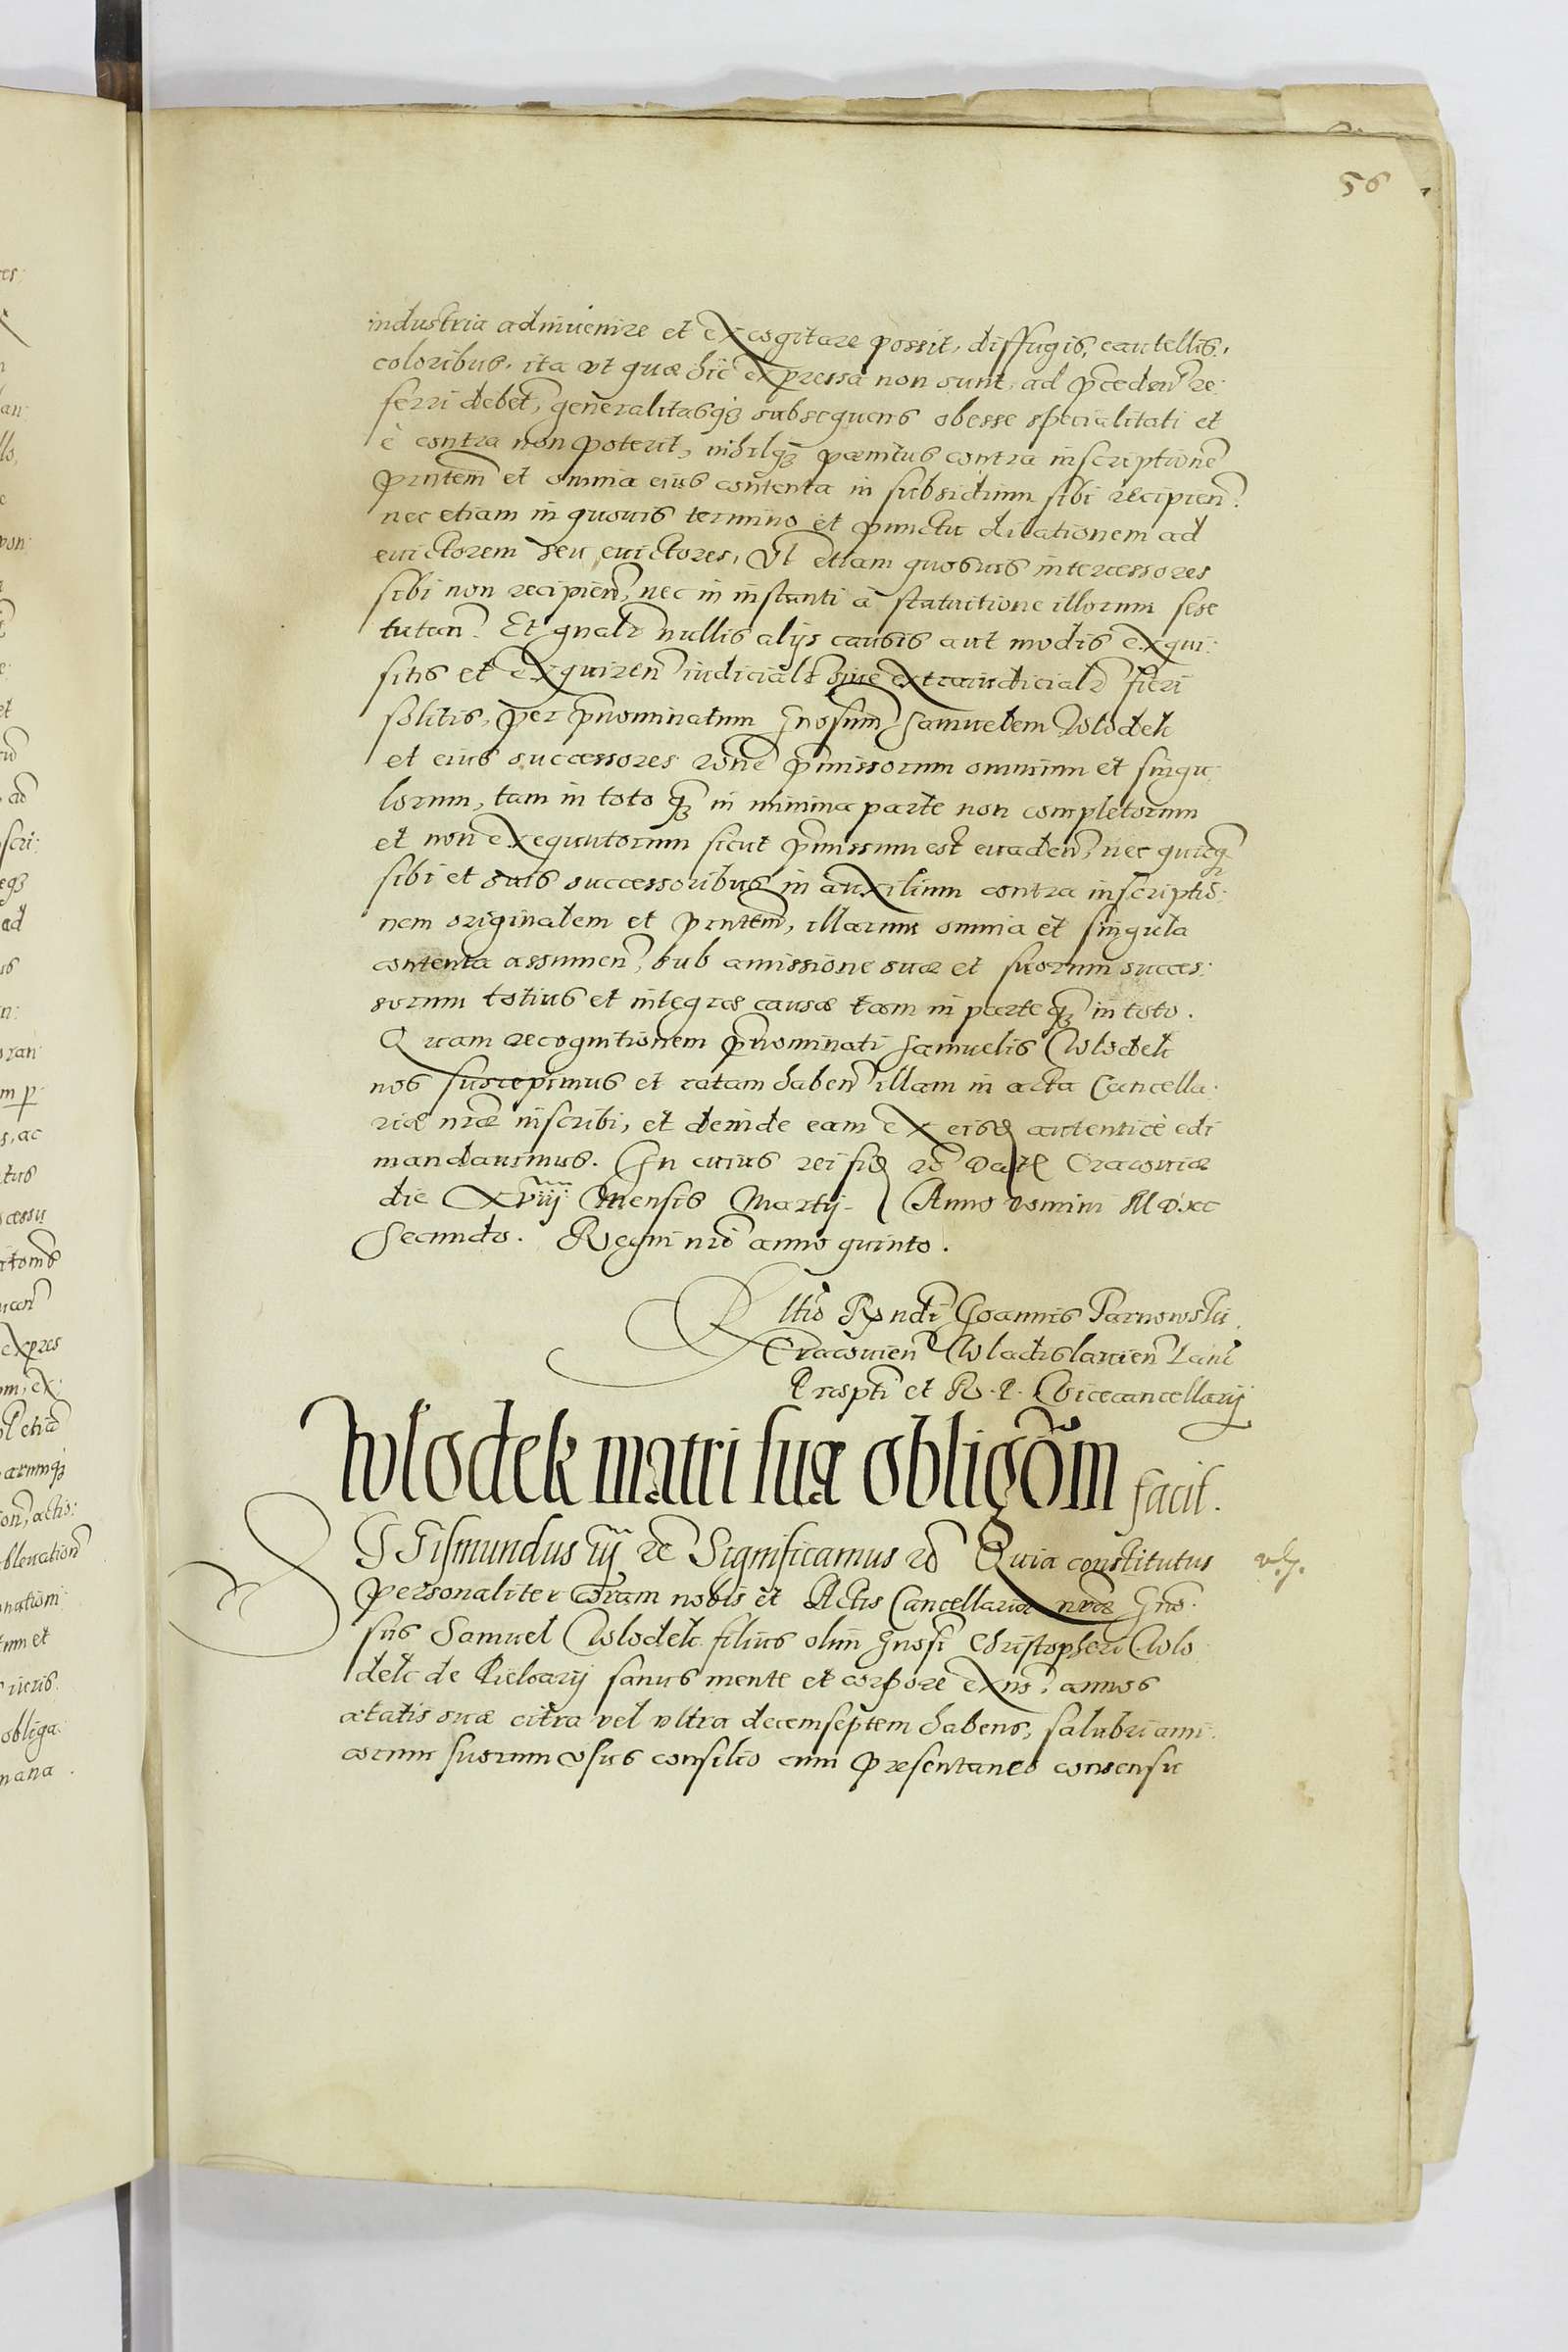 56
industria adinvenire et excogitare possit, diffugis, cautellis,
coloribus, ita ut quæ hic expressa non sunt, ad p̃ceden̄ re:
ferri debet, generalitasq̃ subsequens obesse specialitati et
è contra non poterit, nihilq̃ pœnitus contra inscriptionē
p̃ntem et omnia eius contenta in subsidium sibi recipien̄.
nec etiam in quovis termino et punctu dilationem ad
evictorem seu evictores, vl̃ etiam quosvis intercessores
sibi non recipien̄, nec in instanti à statuitione illorum sese
tutan̄. Et gnalr̃ nullis alijs causis aut modis exqui:
sitis et exquiren̄ iudicialr̃ sive extraiudicialr̃ fieri
solitis, per p̃nominatum Gnosum Samuelem Wlodek
et eius successores rōne p̃missorum omnium et singu
lorum, tam in toto q̃ in minima parte non completorum
et non exequutorum sicut p̃missum est evaden̄, nec quicq̃
sibi et suis successoribus in auxilium contra inscriptio:
nem originalem et p̃ntem, illarum omnia et singula
contenta assumen̄, sub amissione suæ et suorum succes:
sorum totius et integræ causæ tam in parte q̃ in toto.
Quam recognitionem p̃nominati Samuelis Wlodek
nos suscepimus et ratam haben̄ illam in acta Cancella:
riæ nræ inscribi, et deinde eam ex eisd̃ autenticè edi
mandavimus. In cuius rei fid̃ rc̃ Dat̃ Cracoviæ
die xviij Mensis Martij. Anno domini M D. xc
Secundo. Regni nri anno quinto.
Rltio Rṇdi Joannis Tarnowski
Cracovien̄ Wladislavien̄ Lanc̃
Præpti et R. P. Vicecancellarij
Wlodek matri suæ obligōm facit.
SIgismundus iij rc̃ Significamus rc̃ Quia constitutus
personaliter coram nobis et Actis Cancellariæ nræ Gno:
sus Samuel Wlodek filius olim Gnosi Christopheri Wlo
dek de sanus mente et corpore exñs, annos
ætatis suæ citra vel ultra decemseptem habens, salubri ami:
corum suorum usus consilio cum præsentaneo consensu